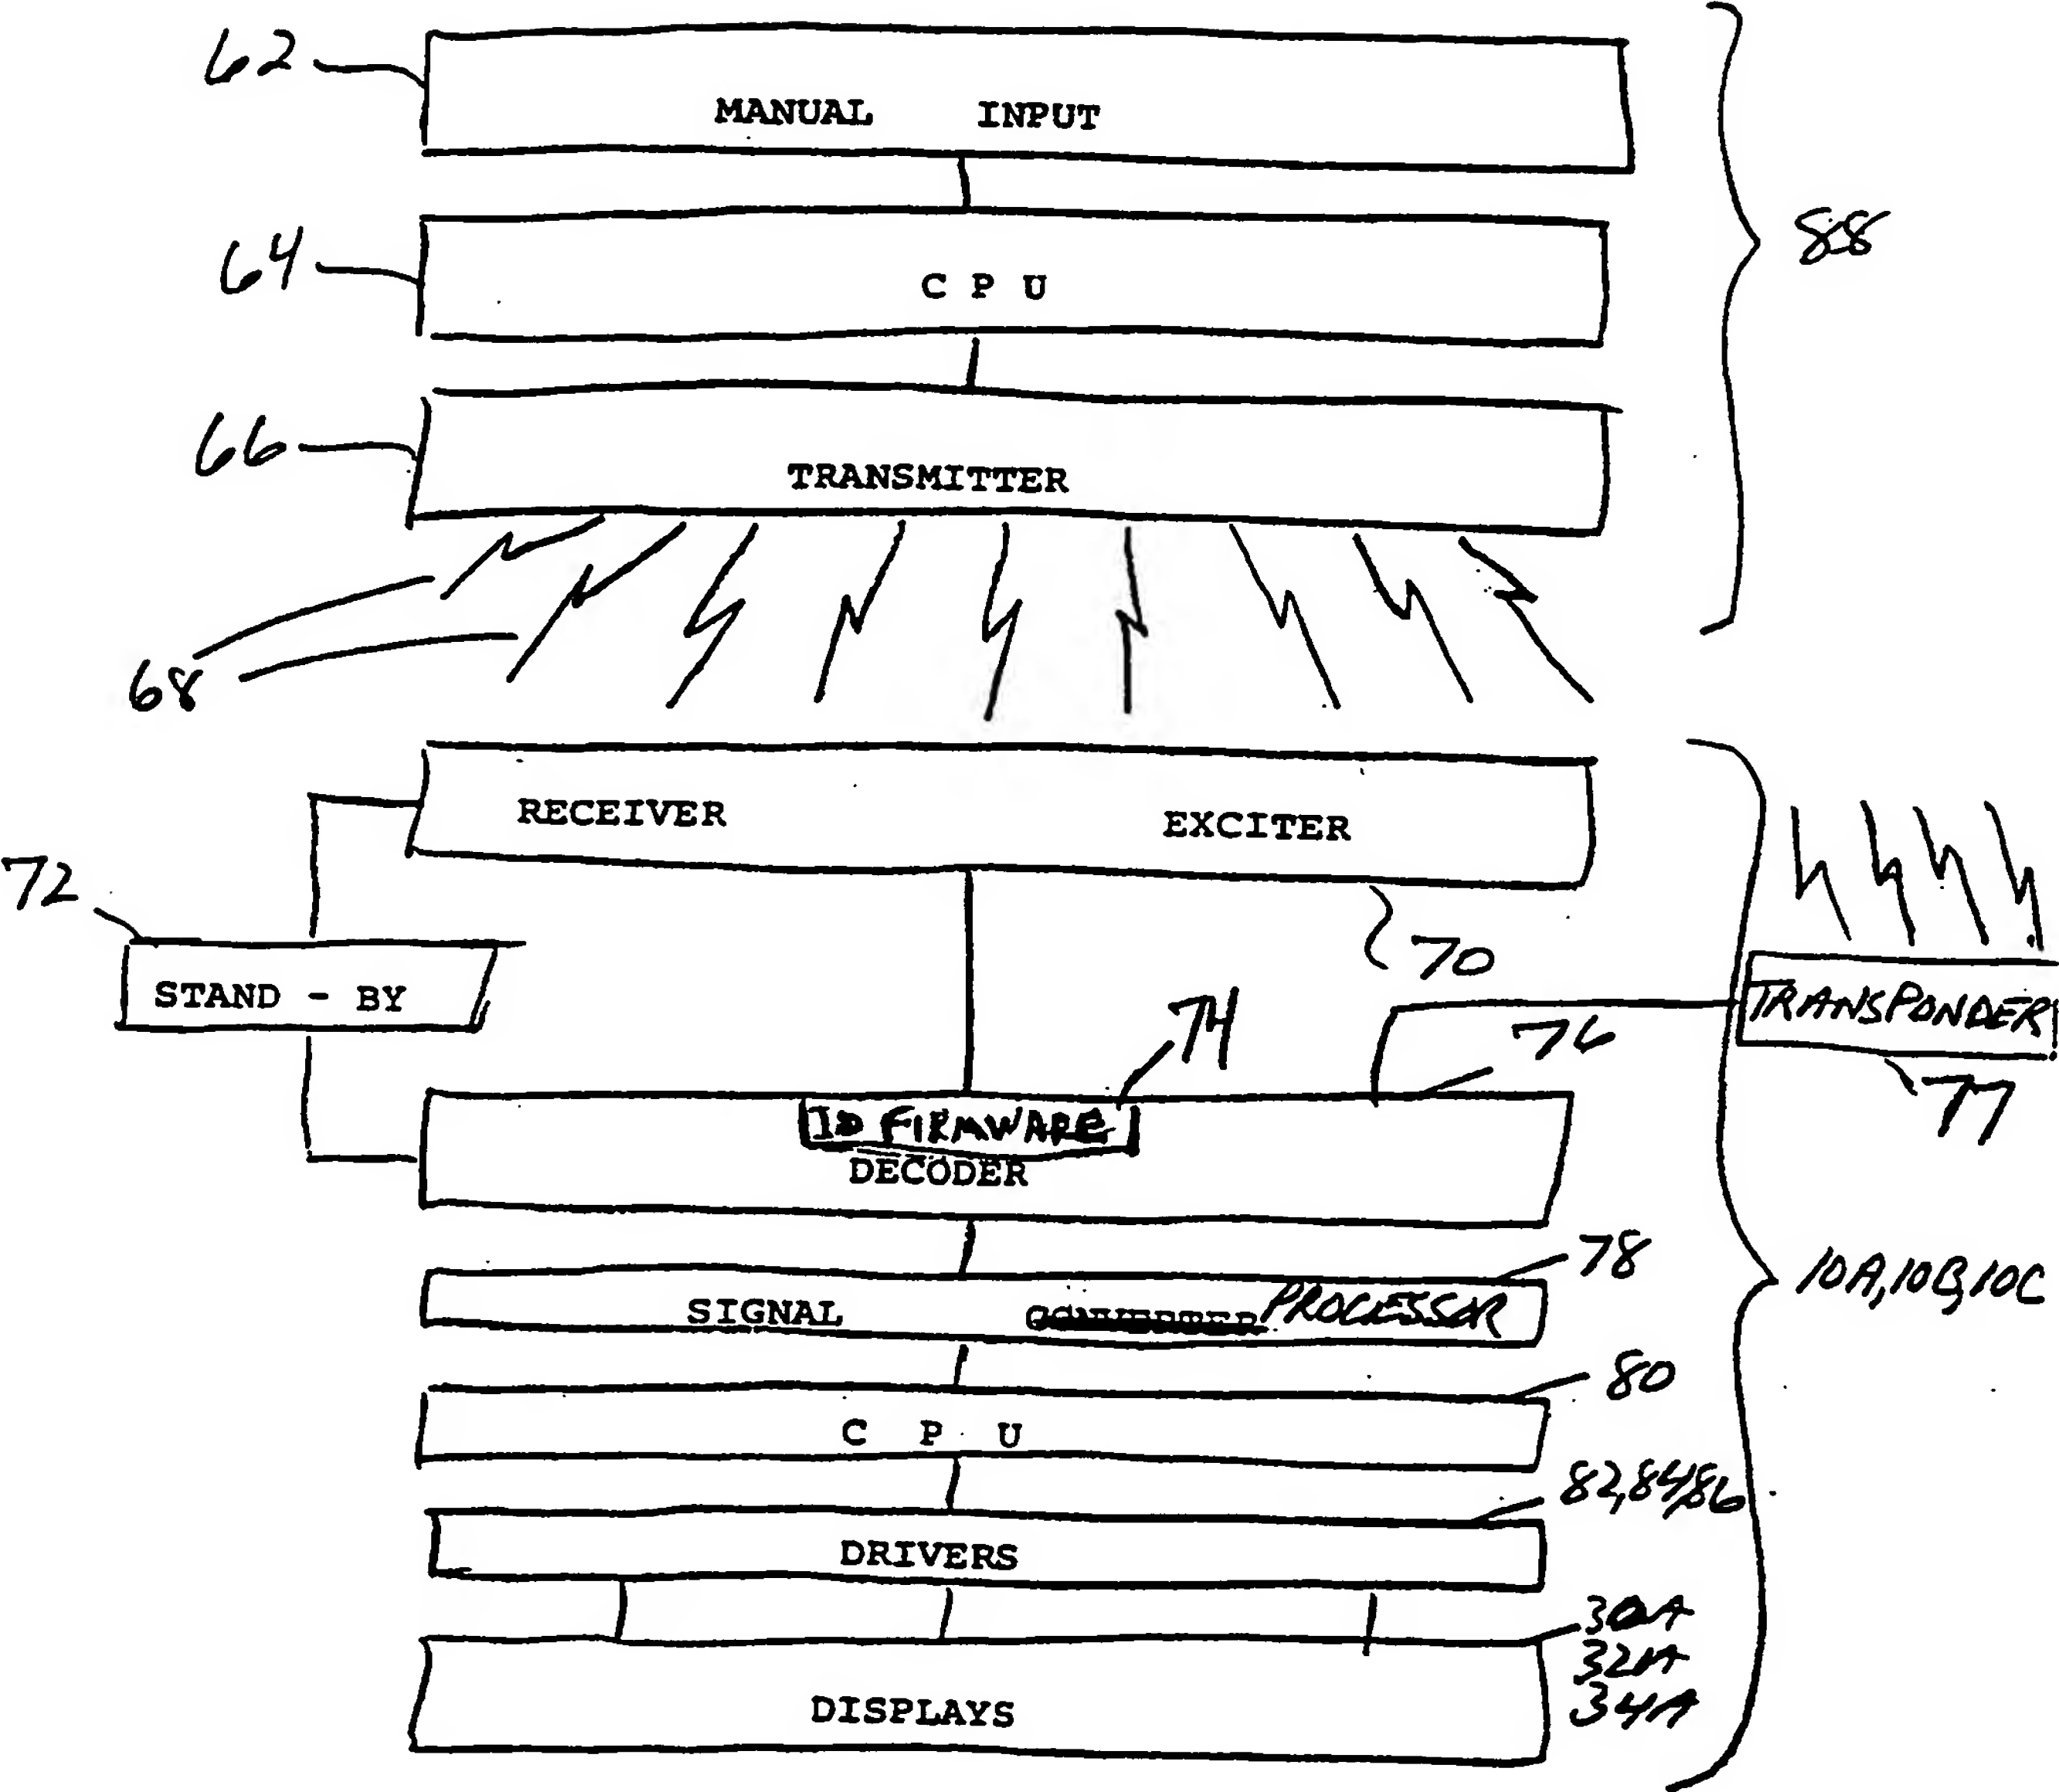 62
MANUAL INPUT
88
64
C P U
66
TRANSMITTER
68
RECEIVER EXCITER
72
70
STAND - BY
74
76
TRANSPONDER
77
ID FIRMWARE
DECODER
78
SIGNAL PROCESSOR
10A,10B,10C
80
C P U
82,84,86
DRIVERS
30A
32A
34A
DISPLAYS